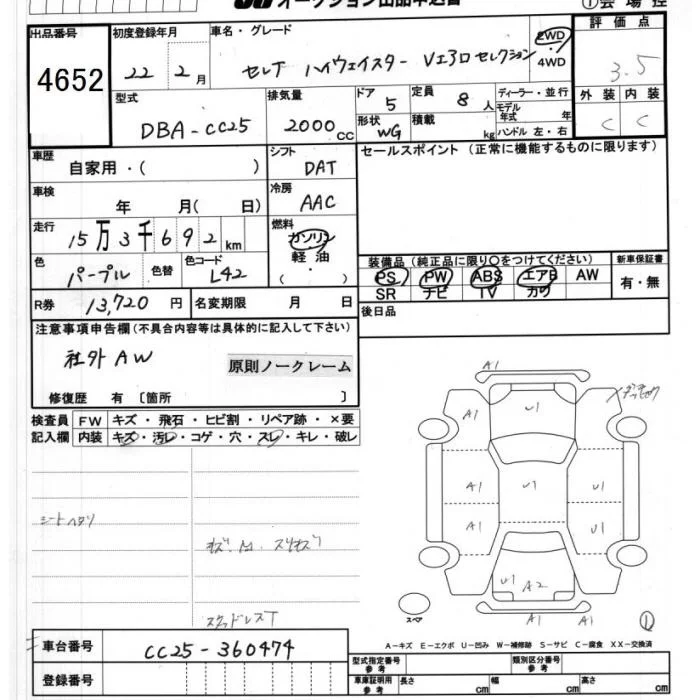 オークション出品申込書 ①会場控
出品番号 4652
初度登録年月 22年 2月
車名・グレード セレナ ハイウェイスター Vエアロセレクション 2WD・4WD
評価点 3.5
型式 DBA-CC25
排気量 2000cc
ドア 5 定員 8人
形状 WG 積載 kg
ディーラー・並行
モデル年式 年
ハンドル 左・右
外装 C 内装 C
車歴 自家用・( )
シフト DAT
セールスポイント(正常に機能するものに限ります)
車検 年 月( 日)
冷房 AAC
走行 15万3千692km
燃料 ガソリン 軽油 ( ・ )
色 パープル 色替 色コード L42
装備品(純正品に限り○をつけてください) 新車保証書
PS PW ABS エアB AW 有・無
SR ナビ TV カワ
R券 13,720円 名変期限 月 日
後日品
注意事項申告欄(不具合内容等は具体的に記入して下さい)
社外AW
原則ノークレーム
修復歴 有〔箇所 〕
検査員記入欄
FW キズ・飛石・ヒビ割・リペア跡・×要
内装 キズ・汚レ・コゲ・穴・スレ・キレ・破レ
シートヘタリ
スタッドレスT
A1
A1 U1
A1 U1 U1
A1
U1 A2
A1 A1
スペア ①
A−キズ E−エクボ U−凹み W−補修跡 S−サビ C−腐食 XX−交換済
車台番号 CC25-360474
登録番号
型式指定番号 参考 類別区分番号 参考
車庫証明用 参考 長さ cm 幅 cm 高さ cm